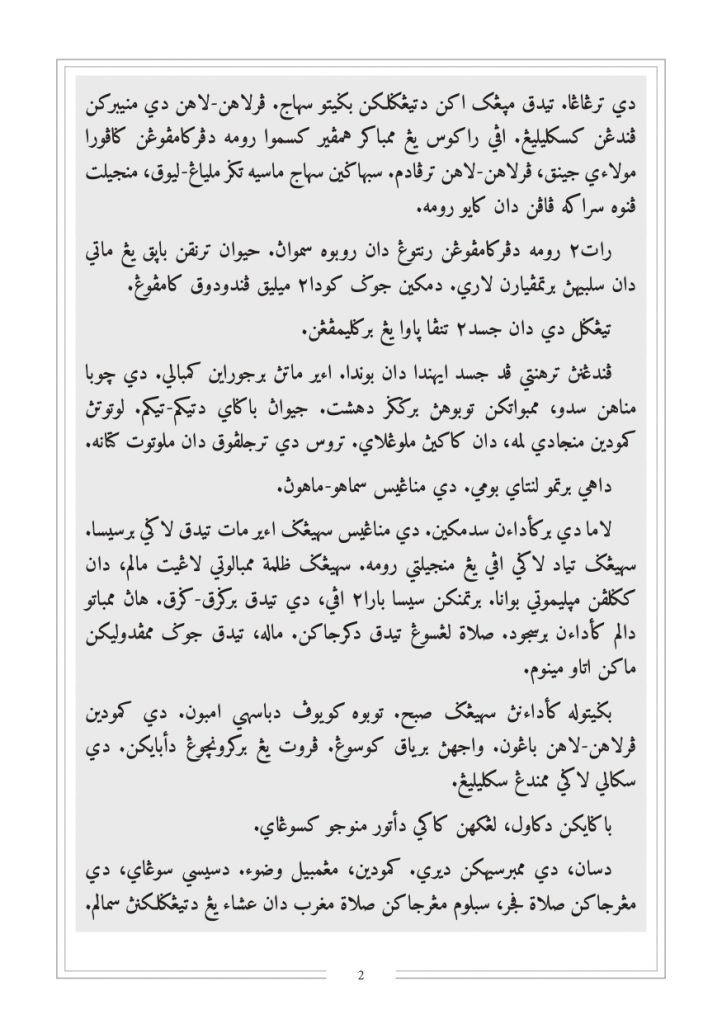 دي ترڠاڠا. تيدق مڽڠک اکن دتيڠݢلکن بݢيتو سهاج. ڤرلاهن-لاهن دي منيبرکن
ڤندڠن کسکليليڠ. اڤي راکوس يڠ ممباکر همڤير کسموا رومه دڤرکامڤوڠن کاڤورا
مولاءي جينق، ڤرلاهن-لاهن ترڤادم. سبهاݢين سهاج ماسيه تݢر ملياڠ-ليوق، منجيلت
ڤنوه سراکه ڤاڤن دان کايو رومه.
رات٢ رومه دڤرکامڤوڠن رنتوڠ دان روبوه سمواڽ. حيوان ترنقن باڽق يڠ ماتي
دان سلبيهڽ برتمڤيارن لاري. دمکين جوݢ کودا٢ ميليق ڤندودوق کامڤوڠ.
تيڠݢل دي دان جسد٢ تنڤا ڽاوا يڠ برݢليمڤڠن.
ڤندڠنڽ ترهنتي ڤد جسد ايهندا دان بوندا. اءير ماتڽ برجوراين کمبالي. دي چوبا
مناهن سدو، ممبواتکن توبوهڽ برݢݢر دهشت. جيواڽ باݢاي دتيکم-تيکم. لوتوتڽ
کمودين منجادي لمه، دان کاکيڽ ملوڠلاي. تروس دي ترجلڤوق دان ملوتوت کتانه.
داهي برتمو لنتاي بومي. دي مناڠيس سماهو-ماهوڽ.
لاما دي برکأداءن سدمکين. دي مناڠيس سهيڠݢ اءير مات تيدق لاݢي برسيسا.
سهيڠݢ تياد لاݢي اڤي يڠ منجيلتي رومه. سهيڠݢ ظلمة ممبالوتي لاڠيت مالم، دان
کݢلڤن مڽليموتي بوانا. برتمنکن سيسا بارا٢ اڤي، دي تيدق برݢرق-ݢرق. هاڽ ممباتو
دالم کأداءن برسجود. صلاة لڠسوڠ تيدق دکرجاکن. ماله، تيدق جوݢ ممڤدوليکن
ماکن اتاو مينوم.
بݢيتوله کأداءنڽ سهيڠݢ صبح. توبوه کويوڤ دباسهي امبون. دي کمودين
ڤرلاهن-لاهن باڠون. واجهڽ برياق کوسوڠ. ڤروت يڠ برکرونچوڠ دأبايکن. دي
سکالي لاݢي ممندڠ سکليليڠ.
باݢايکن دکاول، لڠکهن کاکي دأتور منوجو کسوڠاي.
دسان، دي ممبرسيهکن ديري. کمودين، مڠمبيل وضوء. دسيسي سوڠاي، دي
مڠرجاکن صلاة فجر، سبلوم مڠرجاکن صلاة مغرب دان عشاء يڠ دتيڠݢلکنڽ سمالم.
2